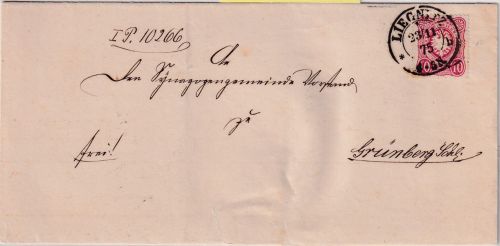 I P. 10266
LIEGNITZ
23/11
75
10
An
den Synagogengemeinde Vorstand
zu
frei!
Grünberg Schl.